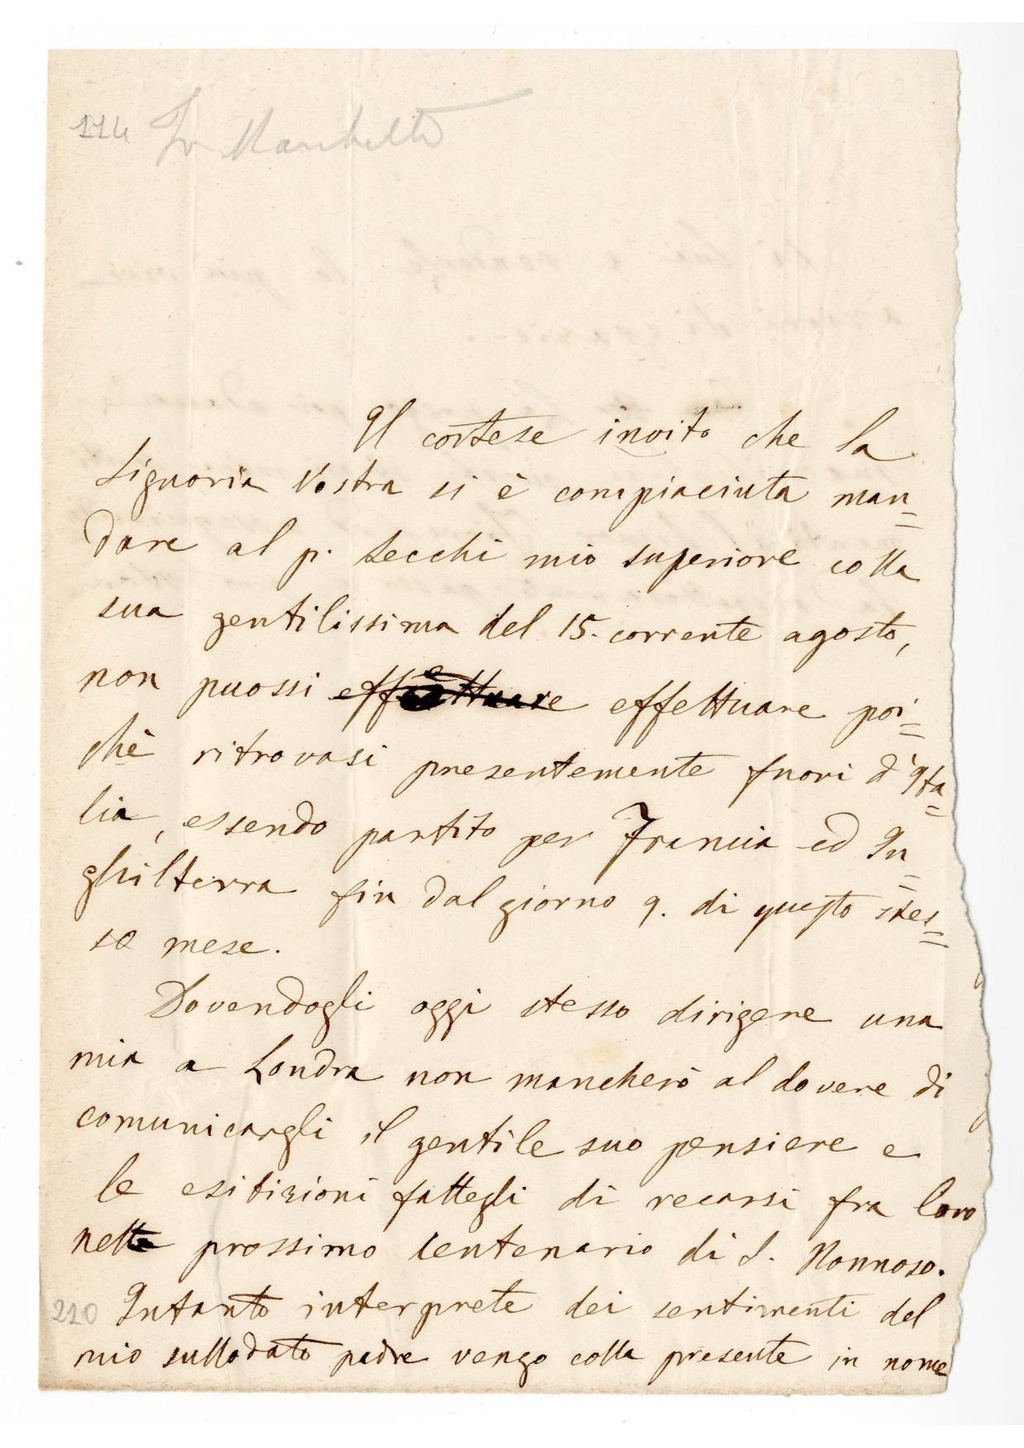 114 Fr Marchetti
Il cortese invito che la
Signoria Vostra si è compiaciuta man=
dare al p. Secchi mio superiore colla
sua gentilissima del 15. corrente agosto,
non puossi effettuare effettuare poi=
chè ritrovasi presentemente fuori d'Ita=
lia, essendo partito per Francia ed In=
ghilterra fin dal giorno 9. di questo stes=
so mese.
Dovendogli oggi stesso dirigere una
mia a Londra non mancherò al dovere di
comunicargli il gentile suo pensiere e
le esibizioni fattegli di recarsi fra loro
nella prossimo Centenario di S. Nonnoso.
220 Intanto interprete dei sentimenti del
mio sullodato padre vengo colla presente in nome